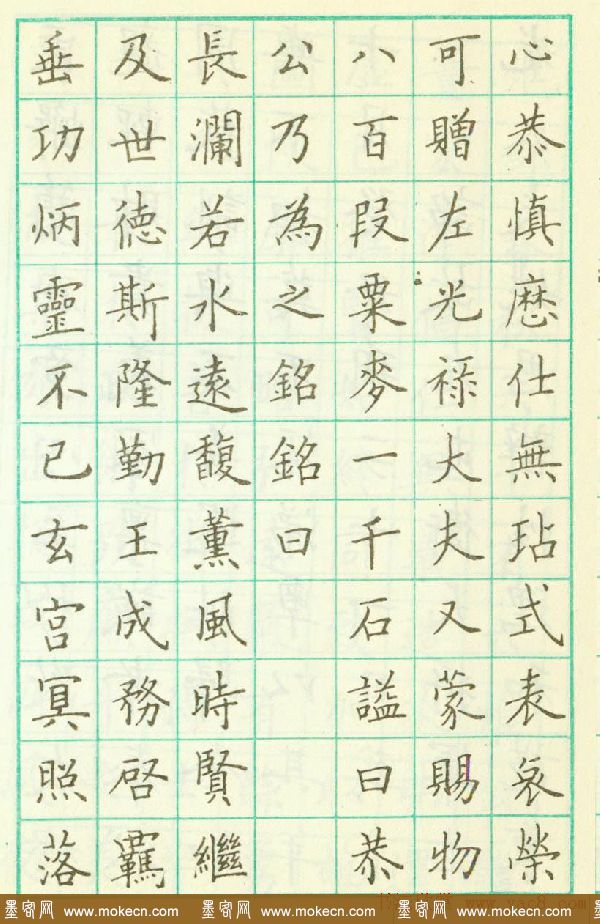 心恭慎厯仕無玷式表哀榮
可贈左光禄大夫又蒙賜物
八百段粟麥一千石謚曰恭
公乃為之銘銘曰
長瀾若水遠馥薰風時賢繼
及世德斯隆勤王成務啓羈
垂功炳靈不已玄宮冥照落
墨客网 www.mokecn.com 墨客网 www.mokecn.com 墨客网 www.mokecn.com